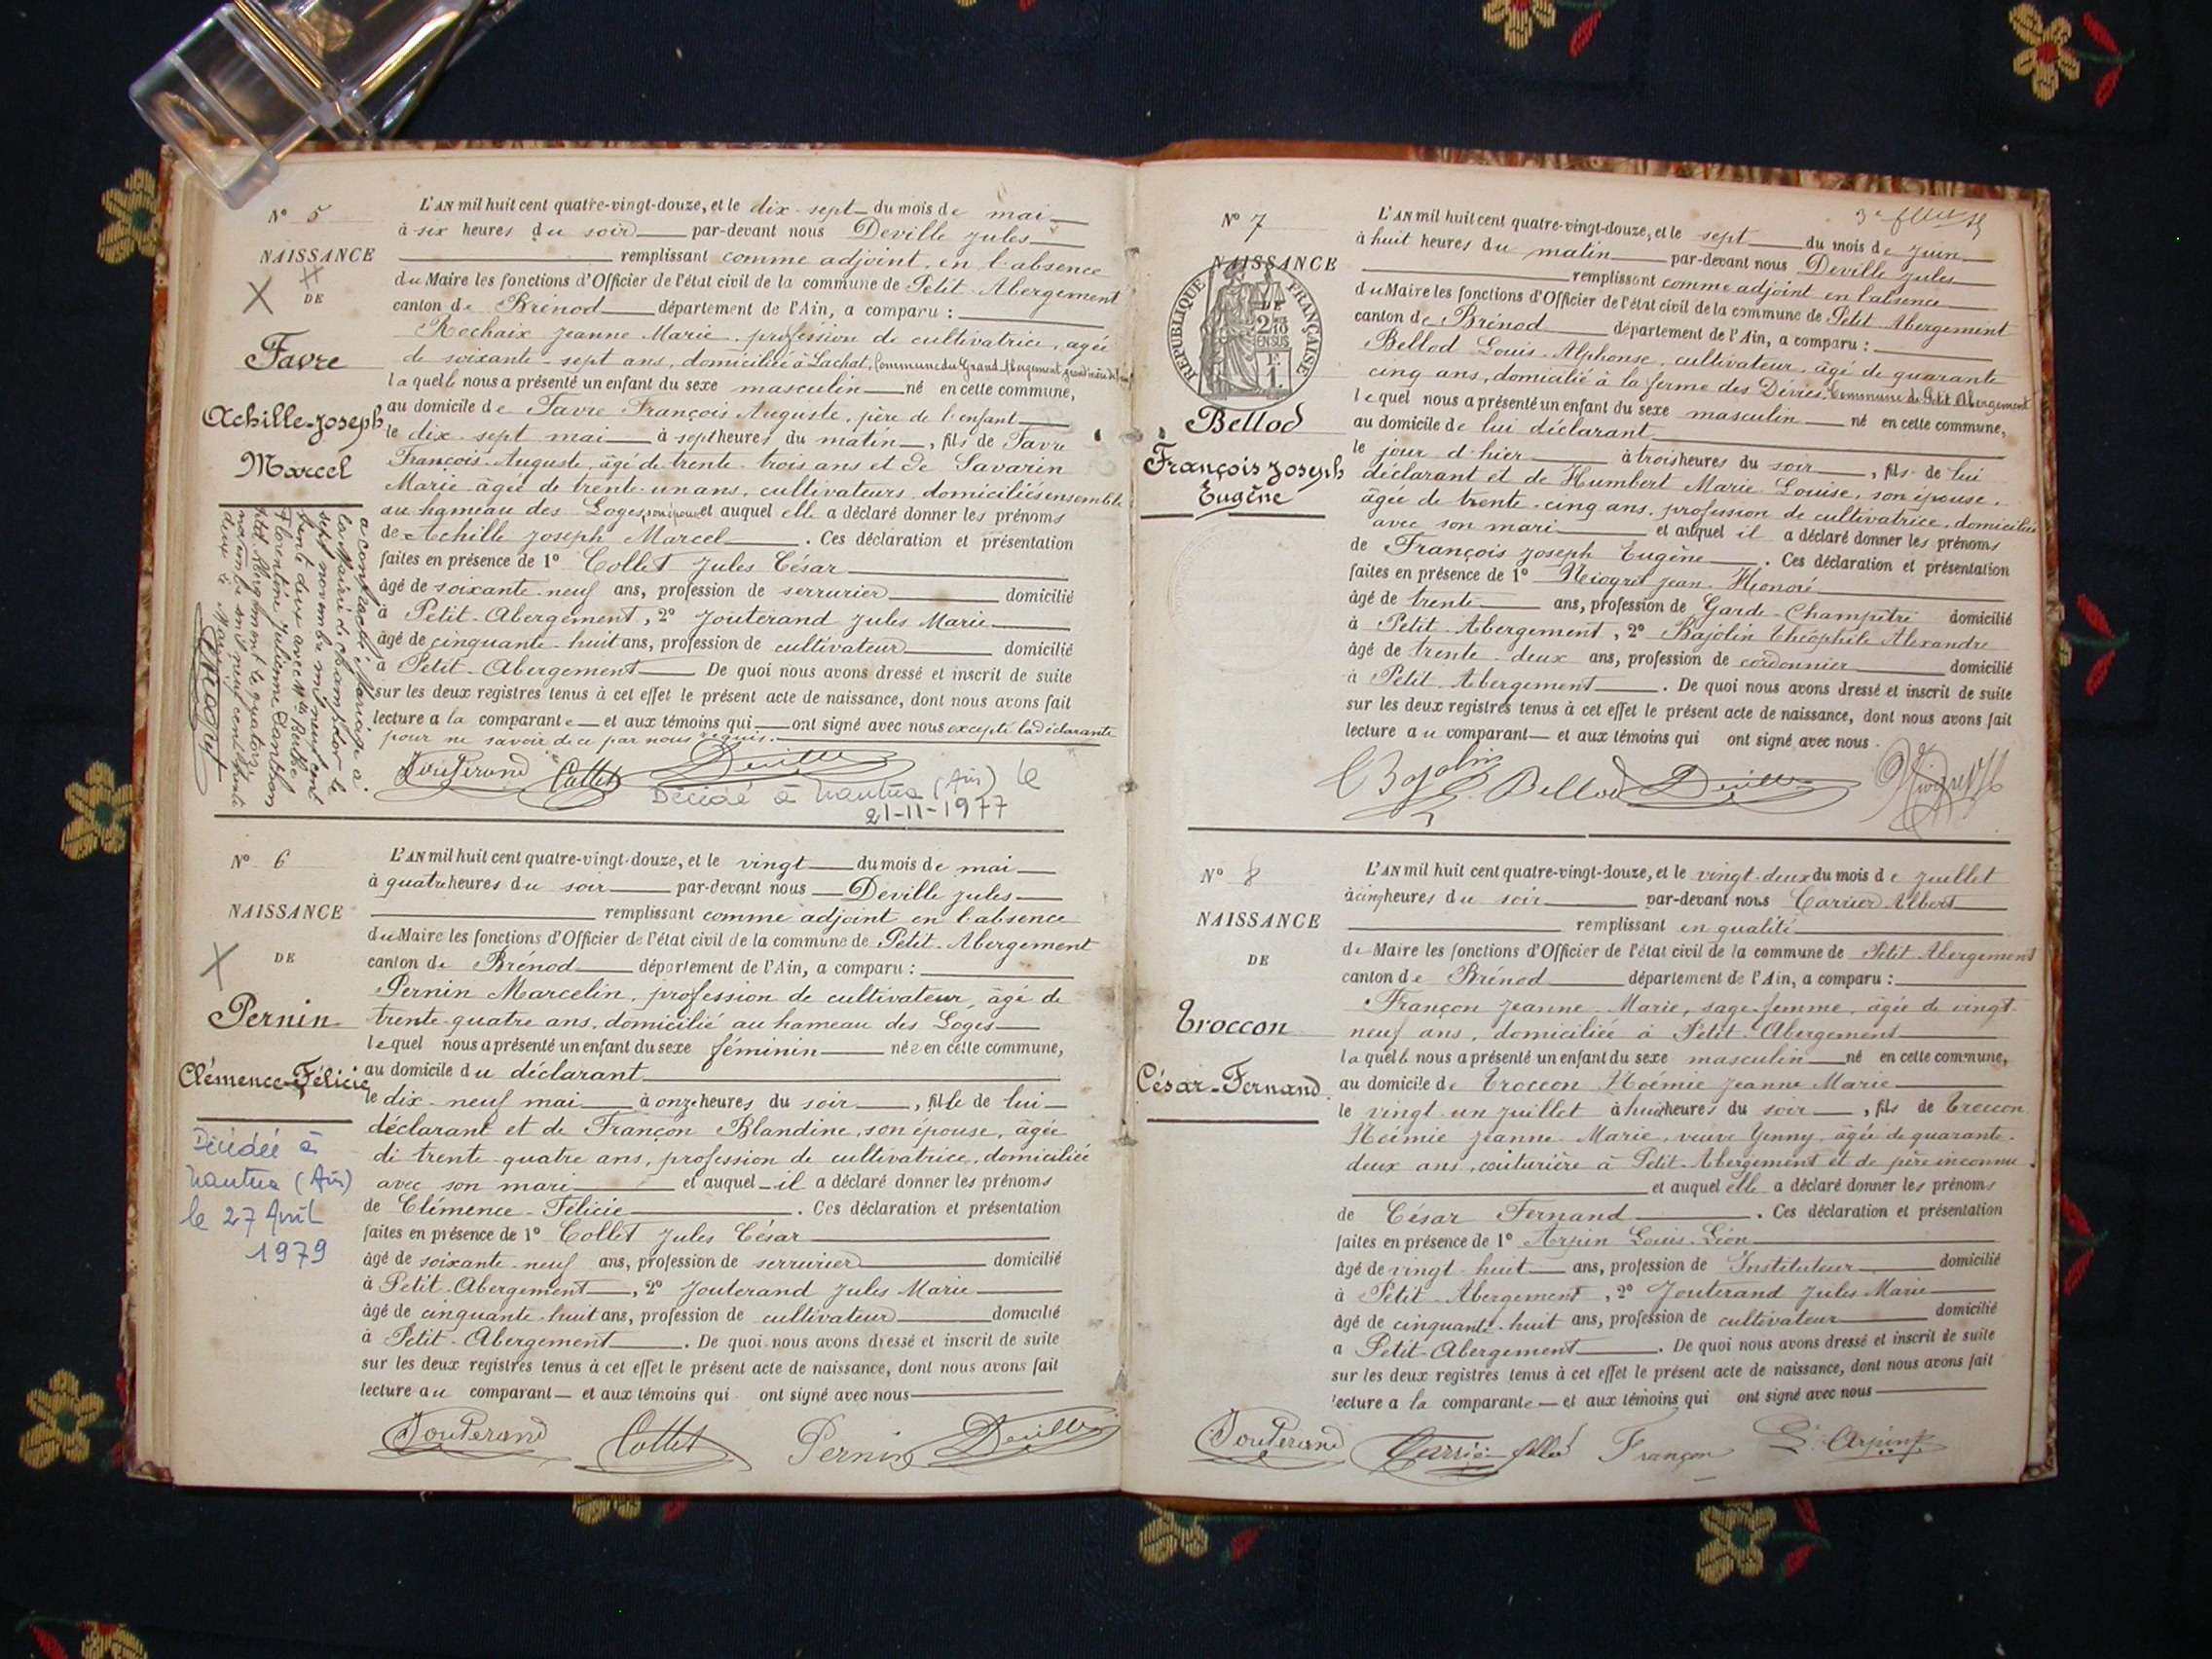 N° 5
NAISSANCE
DE
Favre
Achille-Joseph
Marcel
a contracté Mariage à
la Mairie de Champdor le
sept novembre mil neuf cent
trente deux avec Mlle Berthe
Florentine Julienne
Petit Abergement le quatorze
novembre mil neuf cent trente
deux
L'AN mil huit cent quatre-vingt-douze, et le dix-sept du mois de mai
à six heures du soir par-devant nous Deville Jules
remplissant comme adjoint, en l'absence
du Maire les fonctions d'Officier de l'état civil de la commune de Petit-Abergement
canton de Brénod département de l'Ain, a comparu :
Rochaix Jeanne Marie, profession de cultivatrice, agée
de soixante-sept ans, domiciliée à Lachat, Commune du Grand Abergement grand'mère de
laquelle nous a présenté un enfant du sexe masculin né en cette commune,
au domicile de Favre François Auguste, père de l'enfant
le dix-sept mai à sept heures du matin, fils de Favre
François-Auguste, âgé de trente-trois ans et de Savarin
Marie âgée de trente-un ans, cultivateurs domiciliés ensemble
au hameau des Loges, son épouse et auquel elle a déclaré donner les prénoms
de Achille Joseph Marcel. Ces déclaration et présentation
faites en présence de 1° Collet Jules César
âgé de soixante-neuf ans, profession de serrurier domicilié
à Petit-Abergement, 2° Jouterand Jules Marie
âgé de cinquante-huit ans, profession de cultivateur domicilié
à Petit-Abergement De quoi nous avons dressé et inscrit de suite
sur les deux registres tenus à cet effet le présent acte de naissance, dont nous avons fait
lecture a la comparante et aux témoins qui ont signé avec nous excepté la déclarante
pour ne savoir de ce par nous requis.
Jouterand Collet Deville
Décédé à Nantua (Ain) le
21-11-1977
N° 6
NAISSANCE
DE
Pernin
Clémence-Félicie
Décédée à
Nantua (Ain)
le 27 Avril
1979
L'AN mil huit cent quatre-vingt-douze, et le vingt du mois de mai
à quatre heures du soir par-devant nous Deville Jules
remplissant comme adjoint en l'absence
du Maire les fonctions d'Officier de l'état civil de la commune de Petit-Abergement
canton de Brénod département de l'Ain, a comparu :
Pernin Marcelin, profession de cultivateur, âgé de
trente-quatre ans, domicilié au hameau des Loges
lequel nous a présenté un enfant du sexe féminin née en cette commune,
au domicile du déclarant
le dix-neuf mai à onze heures du soir, fille de lui
déclarant et de Françon Blandine, son épouse, âgée
de trente-quatre ans, profession de cultivatrice, domiciliée
avec son mari et auquel il a déclaré donner les prénoms
de Clémence-Félicie. Ces déclaration et présentation
faites en présence de 1° Collet Jules César
âgé de soixante-neuf ans, profession de serrurier domicilié
à Petit-Abergement, 2° Jouterand Jules Marie
âgé de cinquante-huit ans, profession de cultivateur domicilié
à Petit-Abergement. De quoi nous avons dressé et inscrit de suite
sur les deux registres tenus à cet effet le présent acte de naissance, dont nous avons fait
lecture au comparant et aux témoins qui ont signé avec nous
Jouterand Collet Pernin Deville
N° 7
NAISSANCE
RÉPUBLIQUE FRANÇAISE
DE
2/10
EN SUS
F.
1.
Bellod
François Joseph
Eugène
3e
L'AN mil huit cent quatre-vingt-douze, et le sept du mois de juin
à huit heures du matin par-devant nous Deville Jules
remplissant comme adjoint en l'absence
du Maire les fonctions d'Officier de l'état civil de la commune de Petit-Abergement
canton de Brénod département de l'Ain, a comparu :
Bellod Louis-Alphonse, cultivateur, âgé de quarante
cinq ans, domicilié à la ferme des Commune de Petit Abergement
lequel nous a présenté un enfant du sexe masculin né en cette commune,
au domicile de lui déclarant
le jour d'hier à trois heures du soir, fils de lui
déclarant et de Humbert Marie Louise, son épouse,
âgée de trente-cinq ans, profession de cultivatrice, domiciliée
avec son mari et auquel il a déclaré donner les prénoms
de François Joseph Eugène. Ces déclaration et présentation
faites en présence de 1° Niogret Jean-Honoré
âgé de trente ans, profession de Garde-Champêtre domicilié
à Petit-Abergement, 2° Bajolin Théophile Alexandre
âgé de trente-deux ans, profession de cordonnier domicilié
à Petit-Abergement. De quoi nous avons dressé et inscrit de suite
sur les deux registres tenus à cet effet le présent acte de naissance, dont nous avons fait
lecture au comparant et aux témoins qui ont signé avec nous.
Bajolin Bellod Deville Niogret
N° 8
NAISSANCE
DE
Troccon
César-Fernand
L'AN mil huit cent quatre-vingt-douze, et le vingt-deux du mois de juillet
à cinq heures du soir par-devant nous Carrier Albert
remplissant en qualité
de Maire les fonctions d'Officier de l'état civil de la commune de Petit Abergement
canton de Brénod département de l'Ain, a comparu :
Françon Jeanne-Marie, sage-femme, âgée de vingt-
neuf ans, domiciliée à Petit-Abergement
laquelle nous a présenté un enfant du sexe masculin né en cette commune,
au domicile de Troccon Noémie Jeanne Marie
le vingt-un juillet à huit heures du soir, fils de Troccon
Noémie Jeanne-Marie, veuve Yenny, âgée de quarante-
deux ans, couturière à Petit-Abergement et de père inconnu.
et auquel elle a déclaré donner les prénoms
de César Fernand. Ces déclaration et présentation
faites en présence de 1° Arpin Louis-Léon
âgé de vingt-huit ans, profession de Instituteur domicilié
à Petit-Abergement, 2° Jouterand Jules Marie
âgé de cinquante-huit ans, profession de cultivateur domicilié
a Petit-Abergement. De quoi nous avons dressé et inscrit de suite
sur les deux registres tenus à cet effet le présent acte de naissance, dont nous avons fait
lecture a la comparante et aux témoins qui ont signé avec nous
Jouterand Carrier Françon L. Arpin